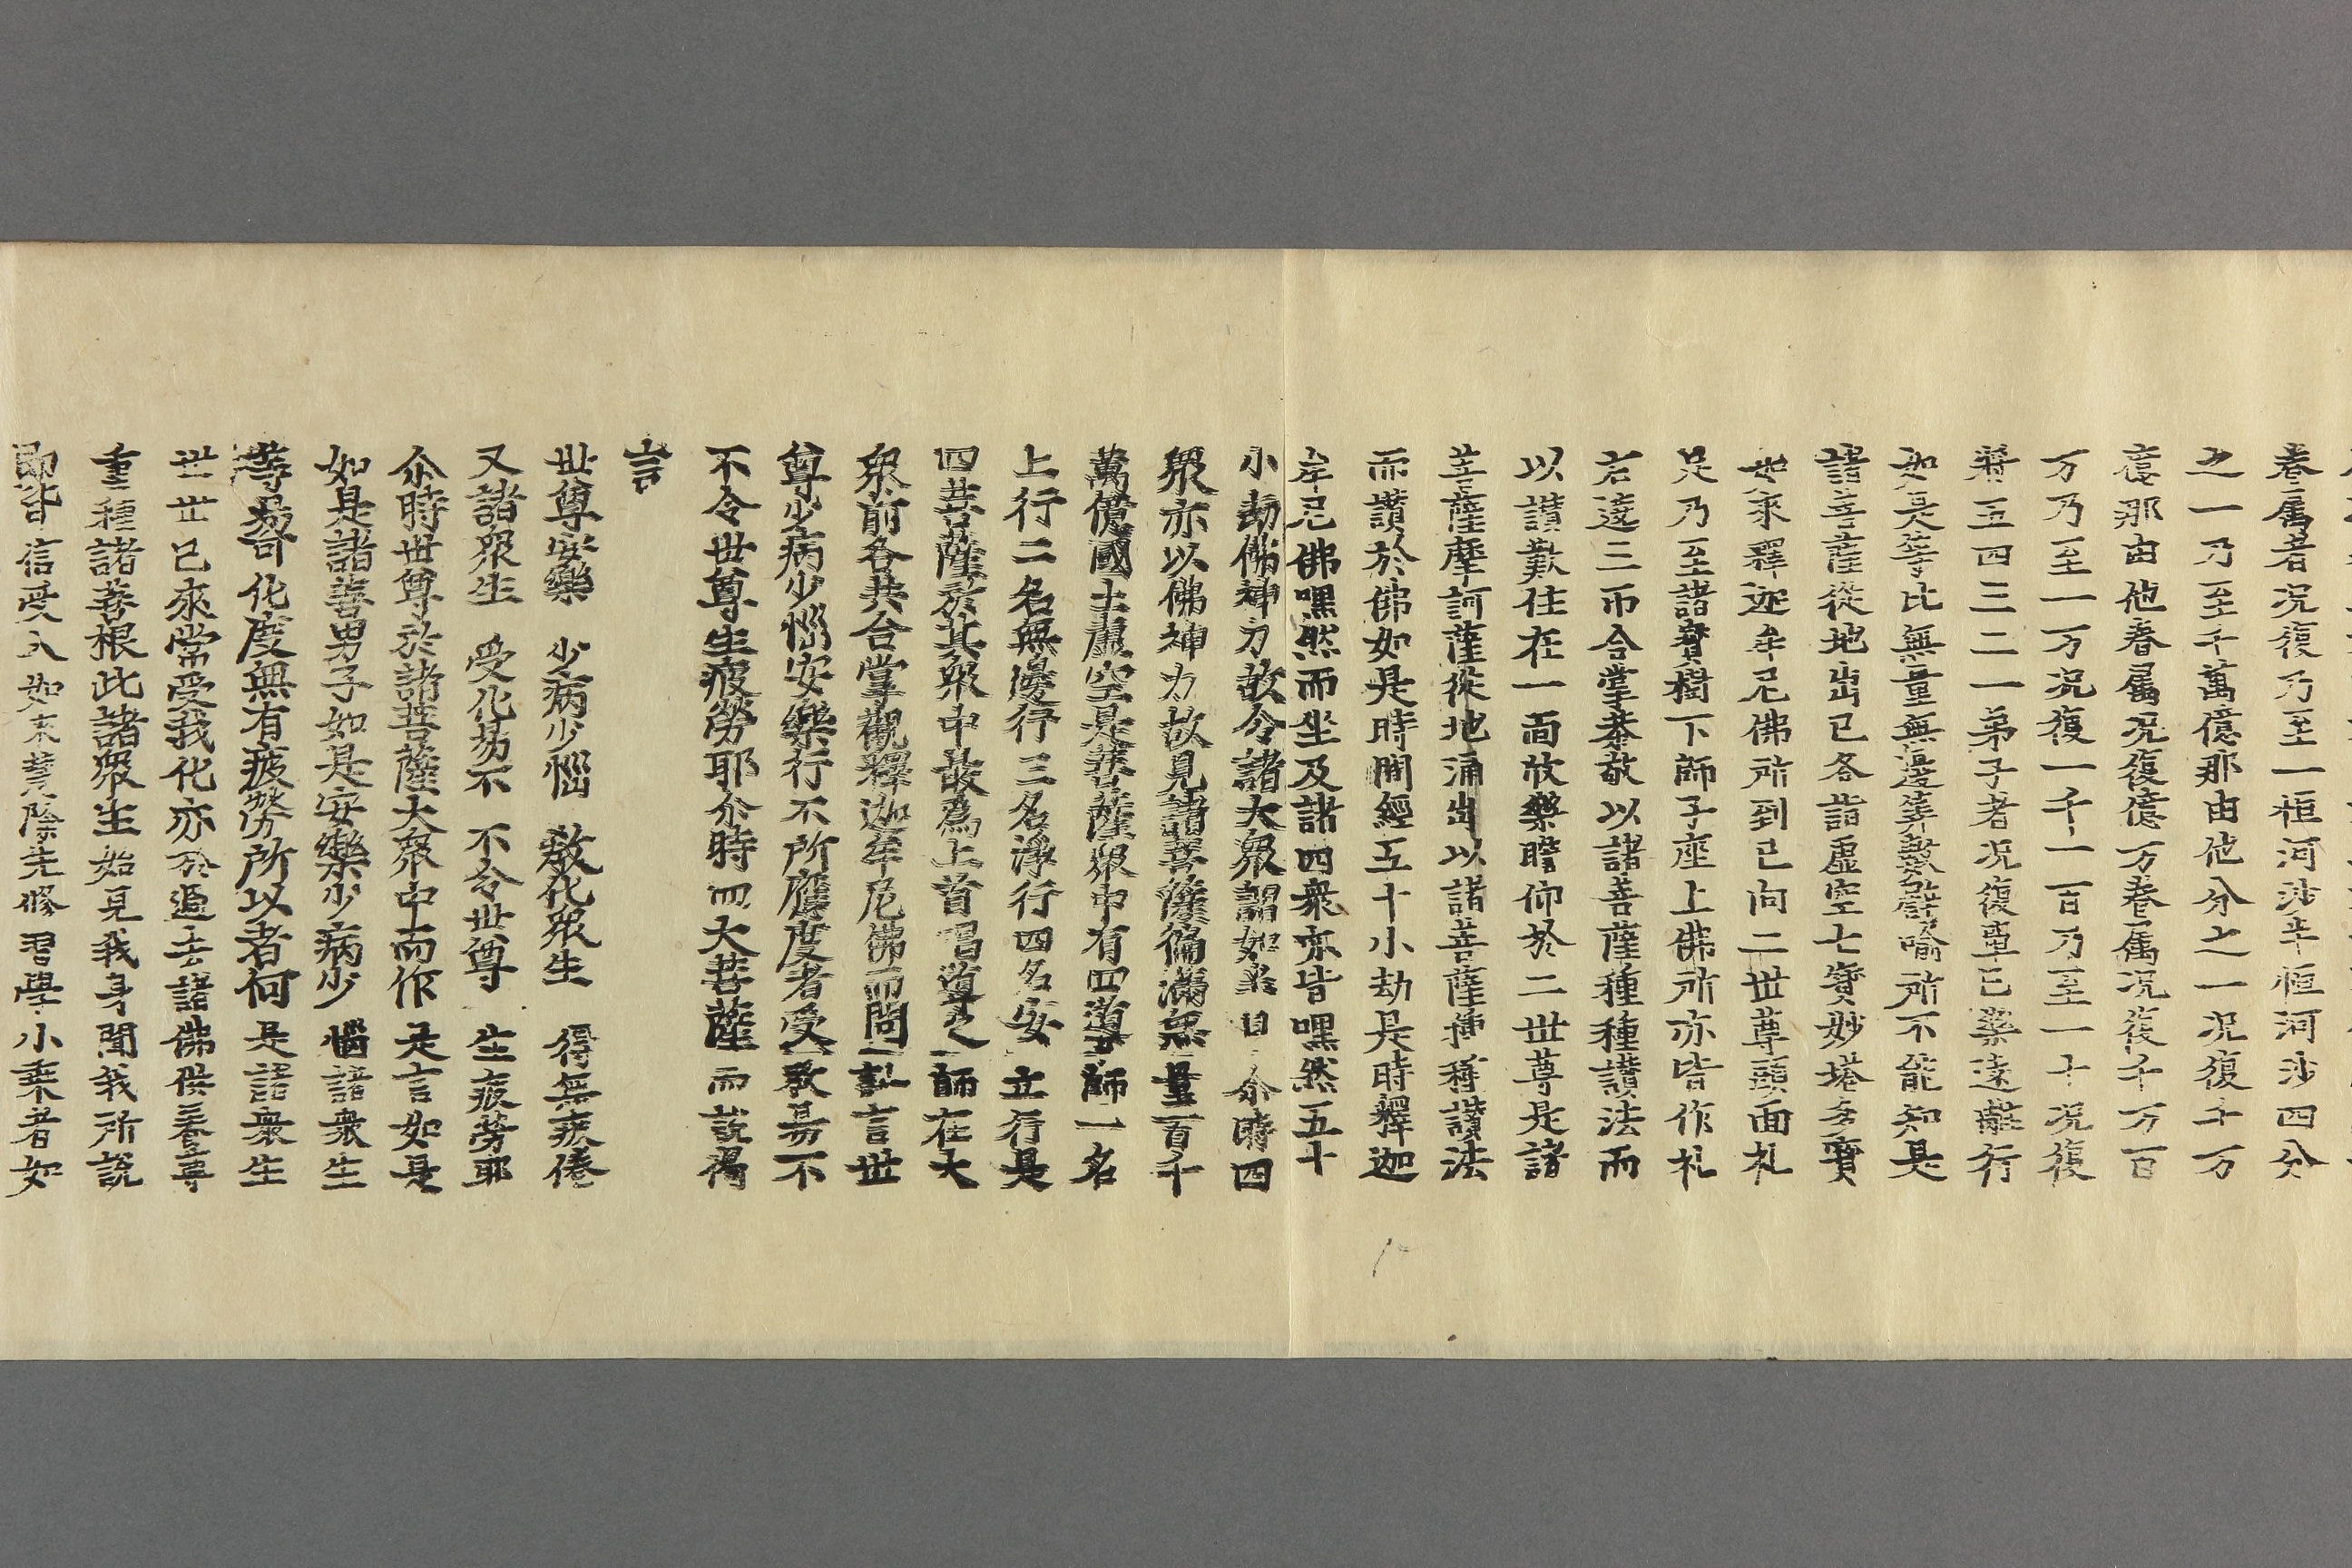 眷属者况復乃至一恒河沙半恒河沙四分
之一乃至千萬億那由他分之一况復千万
億那由他眷属况復億万眷属况復千万百
万乃至一万况復一千一百乃至一十况復
將五四三二一弟子者况復單已樂遠離行
如是等比無量無邊筭數譬喻所不能知是
諸菩薩從地出已各詣虛空七寳妙塔多寳
如来釋迦牟尼佛所到已向二世尊頭面礼
足乃至諸寳樹下師子座上佛所亦皆作礼
右遶三帀合掌恭敬以諸菩薩種種讃法而
以讃歎住在一面欣樂瞻仰於二世尊是諸
菩薩摩訶薩從地涌出以諸菩薩種種讃法
而讃於佛如是時間經五十小劫是時釋迦
牟尼佛嘿然而坐及諸四衆亦皆嘿然五十
小劫佛神力故令諸大衆謂如半日尒時四
衆亦以佛神力故見諸菩薩徧滿無量百千
萬億國土虛空是菩薩衆中有四導師一名
上行二名無邊行三名淨行四名安立行是
四菩薩於其衆中最爲上首唱導之師在大
衆前各共合掌觀釋迦牟尼佛而問訊言世
尊少病少惱安樂行不所應度者受教易不
不令世尊生疲勞耶尒時四大菩薩而説偈
言
世尊安樂 少病少惱 教化衆生 得無疲倦
又諸衆生 受化易不 不令世尊 生疲勞耶
尒時世尊於諸菩薩大衆中而作是言如是
如是諸善男子如是安樂少病少惱諸衆生
等易可化度無有疲勞所以者何是諸衆生
世世已來常受我化亦於過去諸佛供養尊
重種諸善根此諸衆生始見我身聞我所説
即皆信受入如来慧除先修習學小乘者如